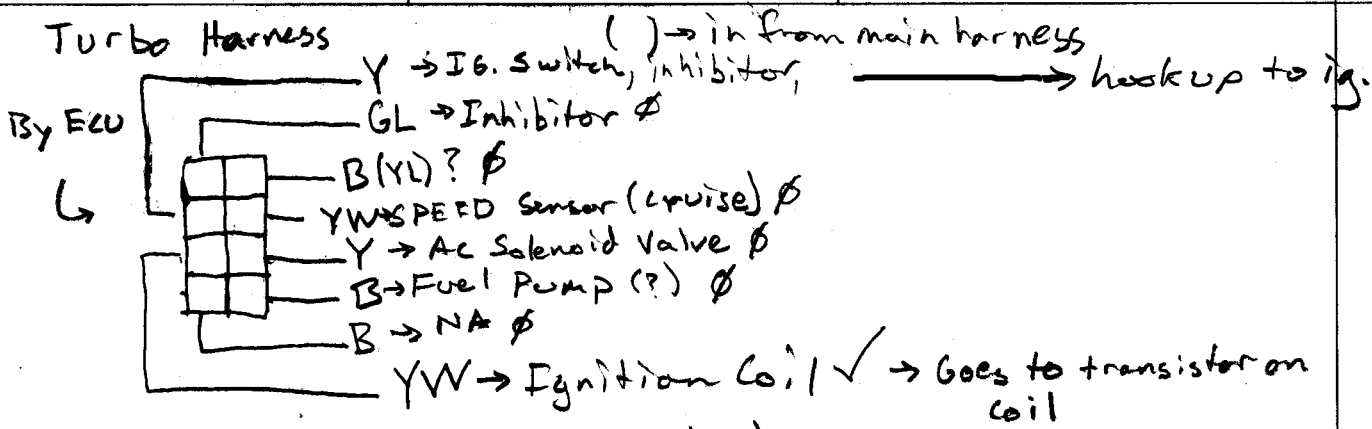 Turbo Harness ( ) → in from main harness
Y → IG. Switch, inhibitor, → hookup to ig.
By ECU
GL → Inhibitor ∅
B(YL)? ∅
YW → SPEED Sensor (cruise) ∅
Y → Ac Solenoid Valve ∅
B → Fuel Pump (?) ∅
B → NA ∅
YW → Ignition Coil ✓ → Goes to transistor on
coil